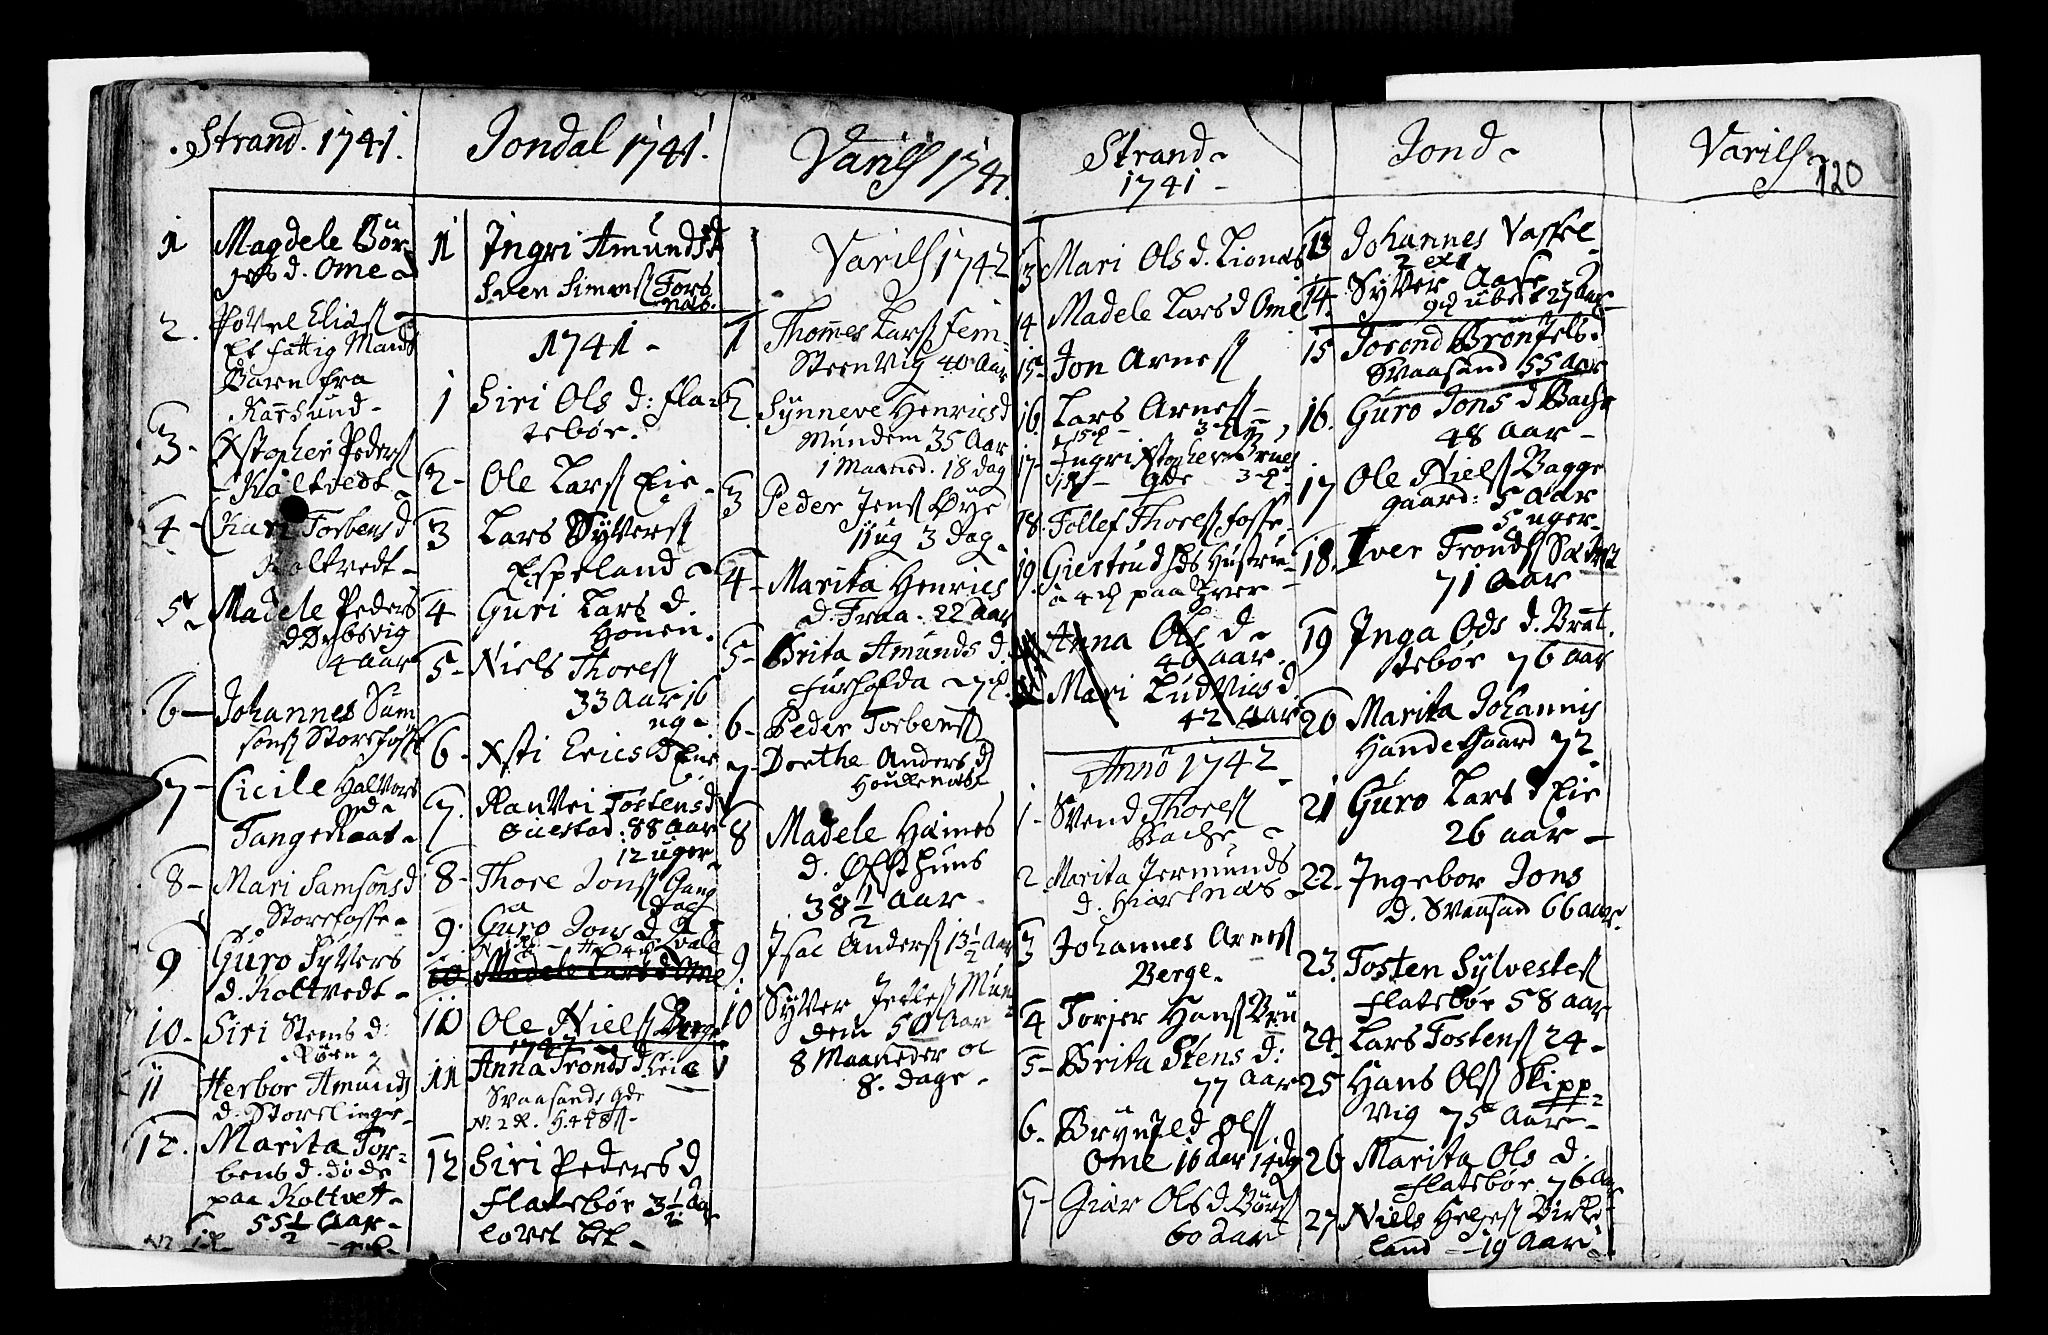 Strand. 1741.
1 Magdele Bör-
d. Ome
2. Povel Elias
Et fattig Mands
Barn fra
Karsund-
3- Xstopher Peders
Koltvedt-
4- Kari Torbens d
Koltvedt-
5 Madele Peders
d
4 aar
6- Johannes Sam
sons Storefoss
7- Cicile Halvors
d-
Tangeraas-
8- Mari Samsons d
Storefosse-
9 Guro Syvers
d. Koltvedt-
10- Siri Stens d:
Røen
11 Herbor Amunds
d. Storelinge-
12. Marita Tor-
bens d. døde
paa Koltvett-
55 1/2 Aar-
Jondal 1741.
11 Ingri Amunds d
Sven Simens Tors
nas.
1741-
1 Siri Ols d: Fla-
tebør.
2- Ole Lars Eie-
3 Lars Syvers
Espeland
4 Guri Lars d.
Honen.
5- Niels Thores
33 Aar 16
ug-
6- Xsti Erics d Eie
7. Ranvei Tostens d
88 Aar
12 uger-
8- Thore Jons Gang
9. Guro Jons d
10 Madele Lars d Ome
10 Ole Niels Berge
1742
11 Anna Tronds d
Svaasands Gde
12 Siri Peders d
Flatebør 3 1/2 Aar
lovet bet-
Varils 1741.
Varils 1742
1 Thommes Lars Fem-
Steenvig 40 Aar
2. Synneve Henrics d
Mundem 35 Aar
1 Maaned. 18 dag
3 Peder Jens Øye
11 ug 3 dag
4- Marita Henrics
d. Traa. 22 Aar
5- Brita Amunds d.
6- Peder Torbens
7- Dorthe Anders d
8 Madele Haines
d.
38 1/2 Aar
9. Isac Anders 13 1/2 Aar
10 Syver Mun-
dem 50 Aar
8 Maaneder oc
8. dage-
Strand-
1741-
13 Mari Ols d. Lionæs
14 Madele Lars d Ome
15- Jon Arnes
16. Lars Arnes-
17- Ingri Xstophers
18. Follef Thores Fosse-
19. Giertrud Hds Hustru-
a 4 paa hver-
Anna Ols d-
46 aar.
Mari Ludvics d
42 Aar
Anno 1742-
1- Svend Thores
Bache-
2 Marita Jermunds
d. Hiartnæs-
3 Johannes Arnes
Berge-
4 Torjer Hans Bru
5- Brita Stens d:
77 Aar
6. Brynild Ols
Ome 16 Aar 14 dg
7- Giør Ols d Børs
60 Aar
Jond-
13 Johannes Vassel-
14. Syver Aase
27 Aar
15 Jorond Brønjels d
Svaasand 55 Aar
16. Guro Jons d Bache
48 Aar-
17 Ole Niels Bagge
gaard: 5 Aar
5 uger-
18. Iver Tronds
71 Aar
19 Inga Ods d. Brat-
tebør 76 Aar
20 Marita Johannis
Handegaard 72-
21 Guro Lars d Eie
26 aar-
22- Ingebor Jons
d. Svaasand 66 Aar
23. Tosten Sylvestes
Flatebør 58 Aar
24- Lars Tostens 24-
25 Hans Ols Skipp-
vig 75 Aar-
26 Marita Ols d.
Flatebør. 76 Aar
27 Niels Helges Birke-
land - 19 Aar
Varils-
120